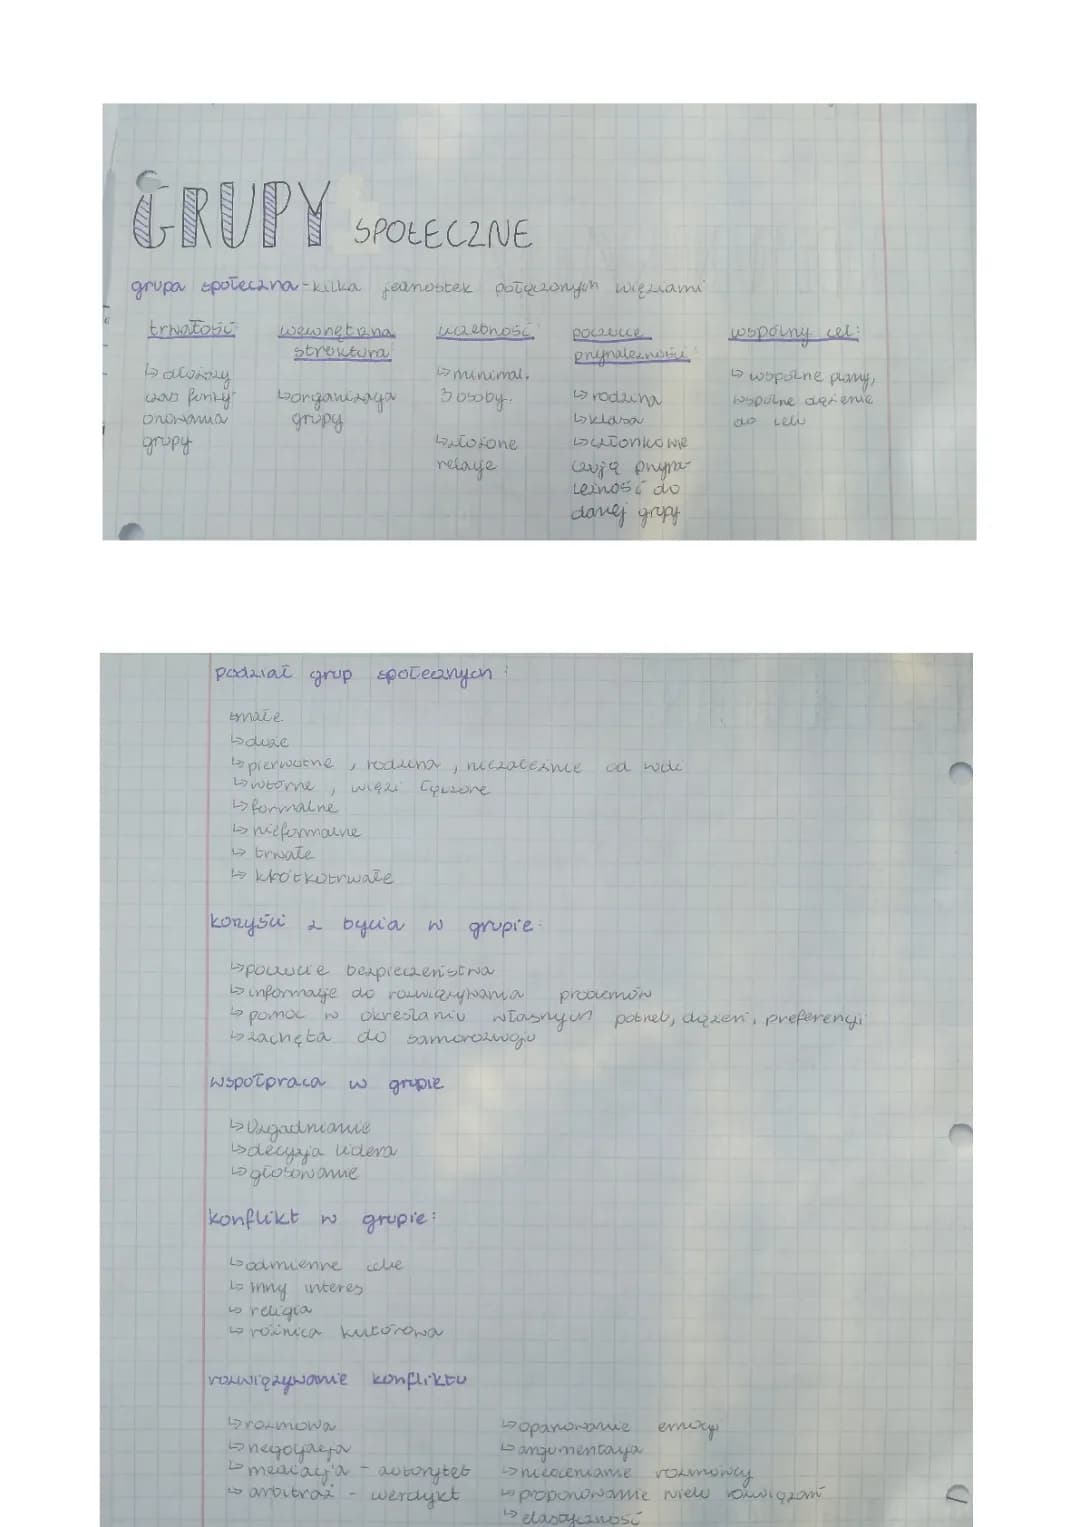 GRUPY SPOŁECZNE
grupa społeczna - kilka jednostek połączonych więziami
trwałość
↳ dłuższy
czas funkcj
onowania
grupy
wewnętrzna
struktura
↳ organizacja
grupy
liczebność
↳ minimal.
3 osoby.
↳ złożone
relacje
poczucie
przynależności
↳ rodzina
↳ klasa
↳ członkowie
czują przyna-
leżność do
danej grupy
wspólny cel:
↳ wspólne plany,
wspólne dążenie
do celu
podział grup społecznych:
małe
↳ duże
↳ pierwotne, rodzina, niezależnie od
↳ wtórne, więzi łączone
↳ formalne
↳ nieformalne
↳ trwałe
↳ krótkotrwałe
korzyści z bycia w grupie:
↳ poczucie bezpieczeństwa
↳ informacje do rozwiązywania problemów
↳ pomoc w określaniu własnych potrzeb, dążeń, preferencji
↳ zachęta do samorozwoju
współpraca w grupie
↳ Uzgadnianie
↳ decyzja lidera
↳ głosowanie
konflikt w grupie:
↳ odmienne cele
↳ inny interes
↳ religia
↳ różnica kultórowa
rozwiązywanie konfliktu
↳ rozmowa
↳ negocjacja
↳ mediacja - autorytet
↳ arbitraż - werdykt
↳ opanowanie emocji
↳ argumentacja
↳ nieocenianie rozmówcy
↳ proponowanie wielu rozwiązań
↳ elastyczność